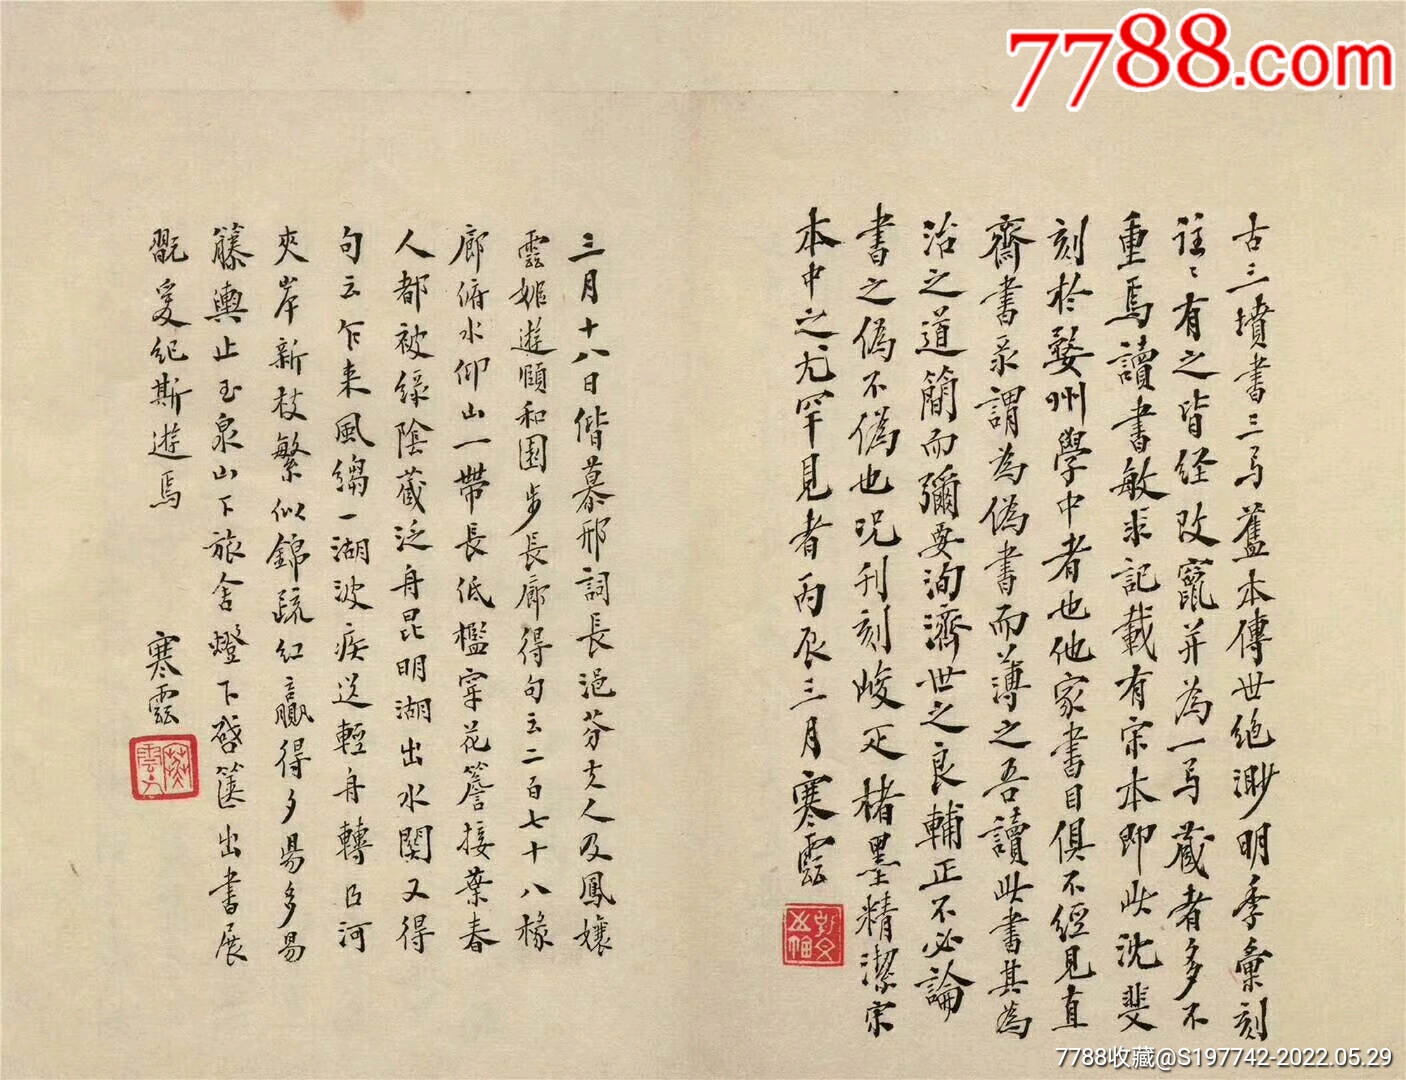 7788.com
古三墳書三弓舊本傳世絶渺明季彙刻
往〻有之皆经改竄并為一弓藏者多不
重焉讀書敏求記載有宗本即此沈斐
刻於婺州學中者也他家書目俱不經見直
齋書录謂為偽書而薄之吾讀此書其為
治之道簡而彌要洵濟世之良輔正不必論
書之偽不偽也况刊刻峻疋楮墨精潔宗
本中之尤罕見者丙辰三月寒雲
三月十八日偕慕邢詞長浥芬夫人及鳳孃
雲姬遊頤和園步長廊得句云二百七十八椽
廊俯水仰山一帶長低檻穿花簷接葉春
人都被綠陰藏泛舟昆明湖出水関又得
句云乍来風縐一湖波疾送輕舟轉曲河
夾岸新枝繁似錦疏紅贏得夕陽多易
籐輿止玉泉山下旅舍燈下啓篋出書展
翫爰纪斯遊焉
寒雲
7788收藏@S197742-2022.05.29